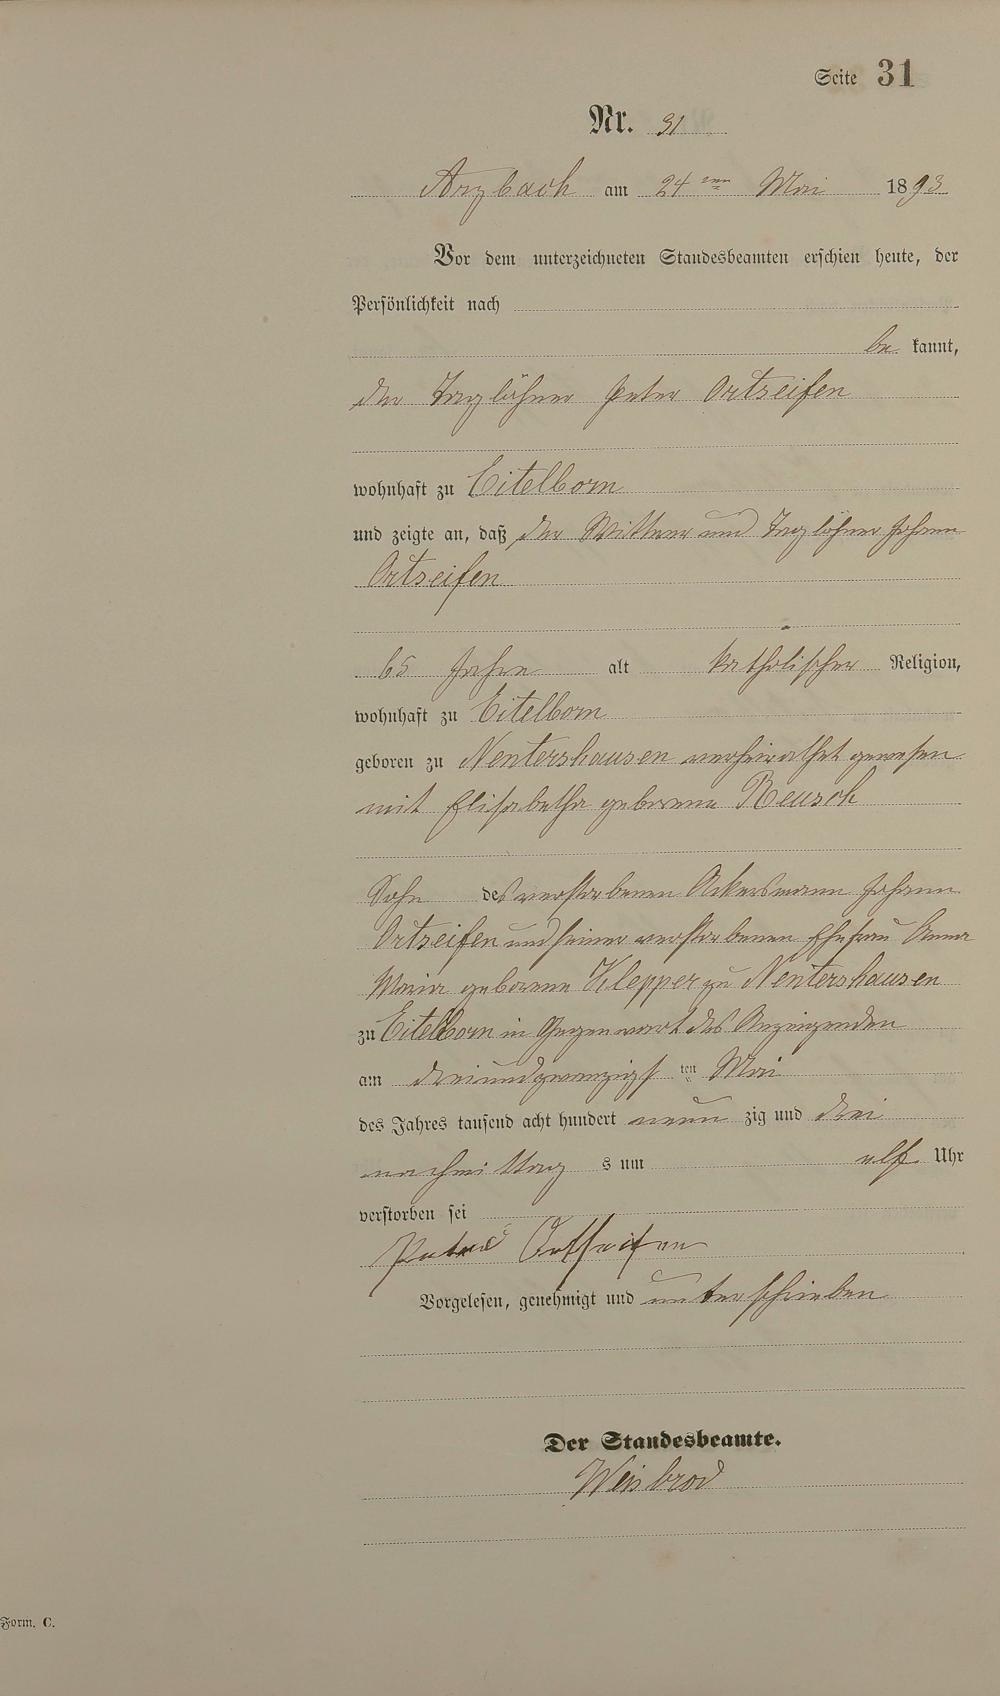 Seite 31
Nr. 31
Arzbach am 24ten Mai 1893
Vor dem unterzeichneten Standesbeamten erschien heute, der
Persönlichkeit nach
be kannt,
der Taglöhner Peter Ortseifen
wohnhaft zu Eitelborn
und zeigte an, daß der Wittwer und Taglöhner Johann
Ortseifen
65 Jahre alt katholischer Religion,
wohnhaft zu Eitelborn
geboren zu Nentershausen verheirathet gewesen
mit Elisabetha geborene Reusch
Sohn des verstorbenen Ackersmann Johann
Ortseifen und seiner verstorbenen Ehefrau Anna
Maria geborene Klepper zu Nentershausen
zu Eitelborn in Gegenwart des Anzeigenden
am dreiundzwanzigsten Mai
des Jahres tausend acht hundert neun zig und drei
nachmittag s um elf Uhr
verstorben sei
Peter Ortseifen
Vorgelesen, genehmigt und unterschrieben
Der Standesbeamte.
Weisbrod
Form. C.